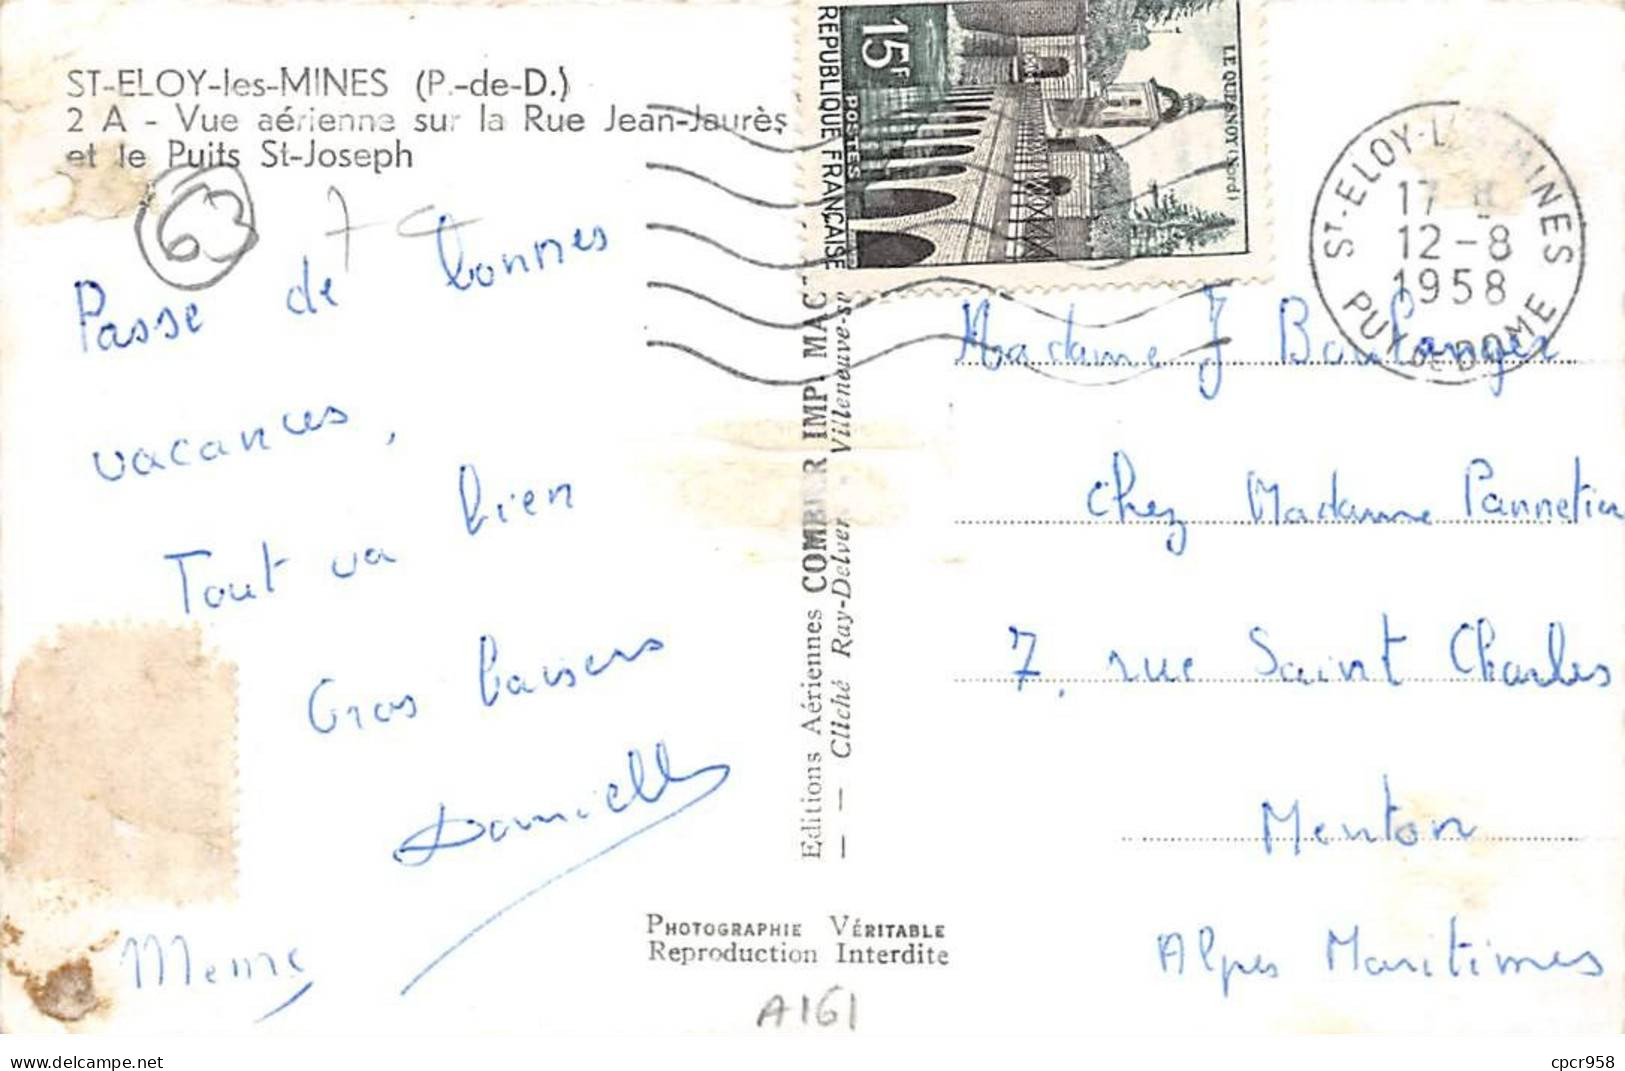 ST-ELOY-les-MINES (P.-de-D.)
2 A - Vue aérienne sur la Rue Jean-Jaurès
et le Puits St-Joseph
63
Passe de bonnes
vacances,
Tout va bien
Gros baisers
Danielle
Editions Aériennes COMBIER IMP. MAC
Cliché Ray-Delvert - Villeneuve-s
PHOTOGRAPHIE VÉRITABLE
Reproduction Interdite
A161
15F
POSTES
REPUBLIQUE FRANÇAISE
LE QUESNOY (Nord)
ST-ELOY-LES-MINES
17 H
12-8
1958
PUY DE DOME
Madame J. Boulanger
Chez Madame Pannetier
7, rue Saint Charles
Menton
Alpes Maritimes
delcampe.net
cpcr958